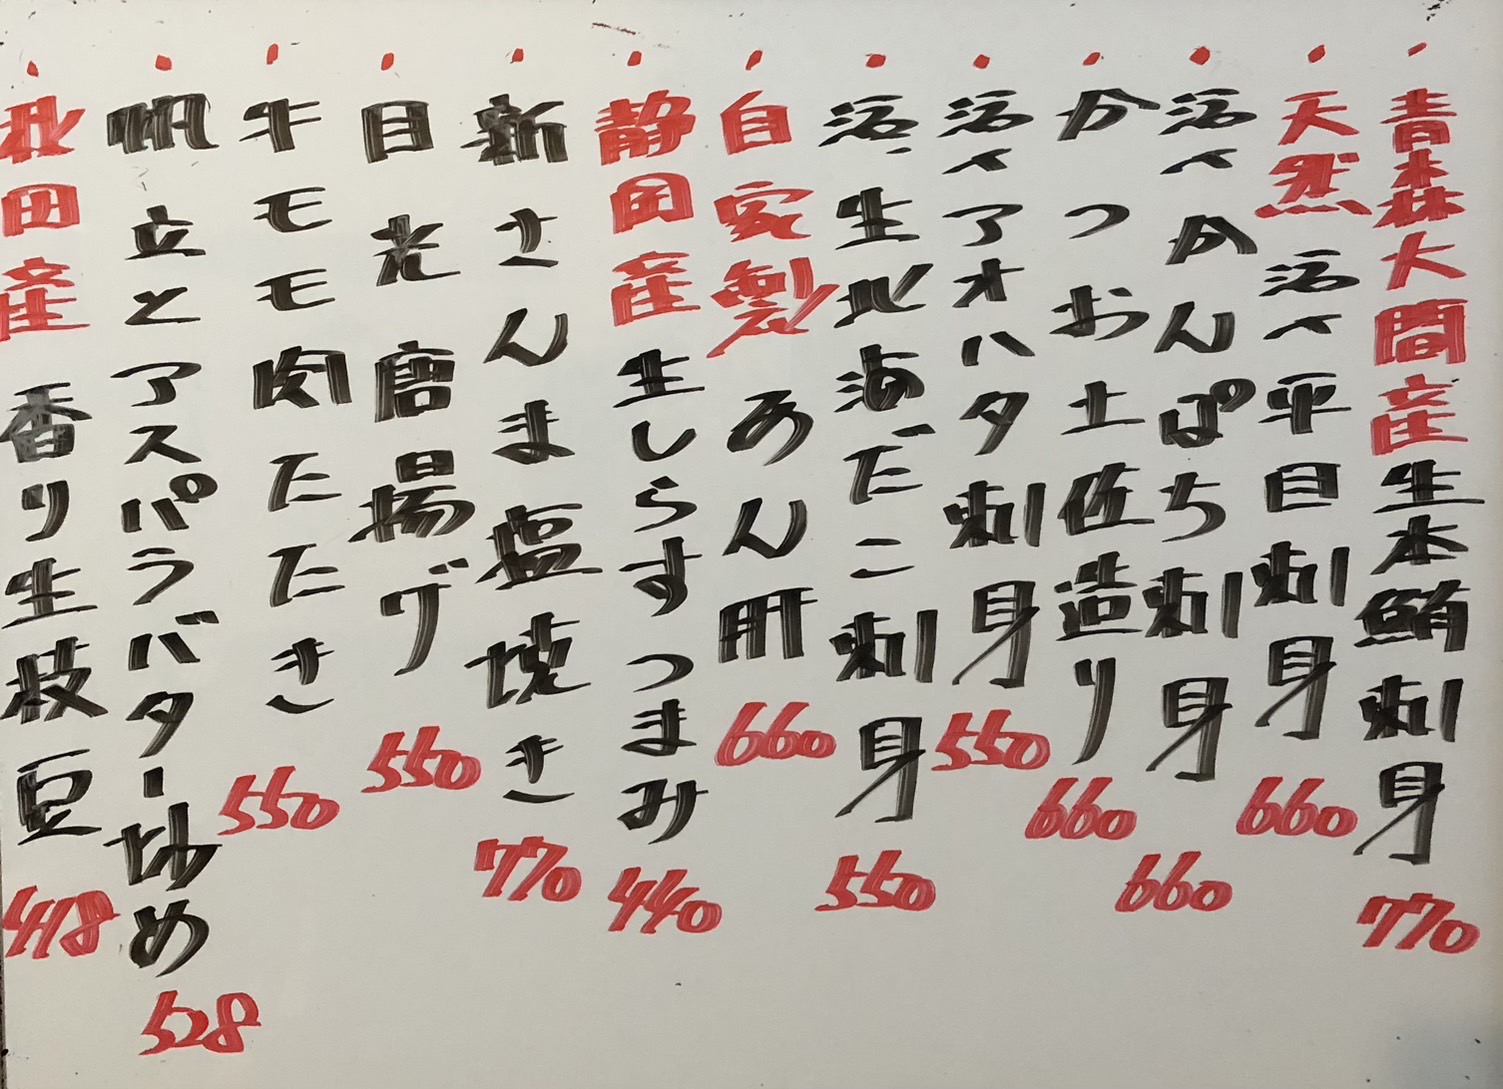 ・青森大間産生本鮪刺身 770
・天然 活〆平目刺身 660
・活〆かんぱち刺身 660
・かつお土佐造り 660
・活〆アオハタ刺身 550
・活・生北海だこ刺身 550
・自家製 あん肝 660
・静岡産 生しらすつまみ 440
・新さんま塩焼き 770
・目光唐揚げ 550
・牛モモ肉たたき 550
・帆立とアスパラバター炒め 528
・秋田産 香り生枝豆 418